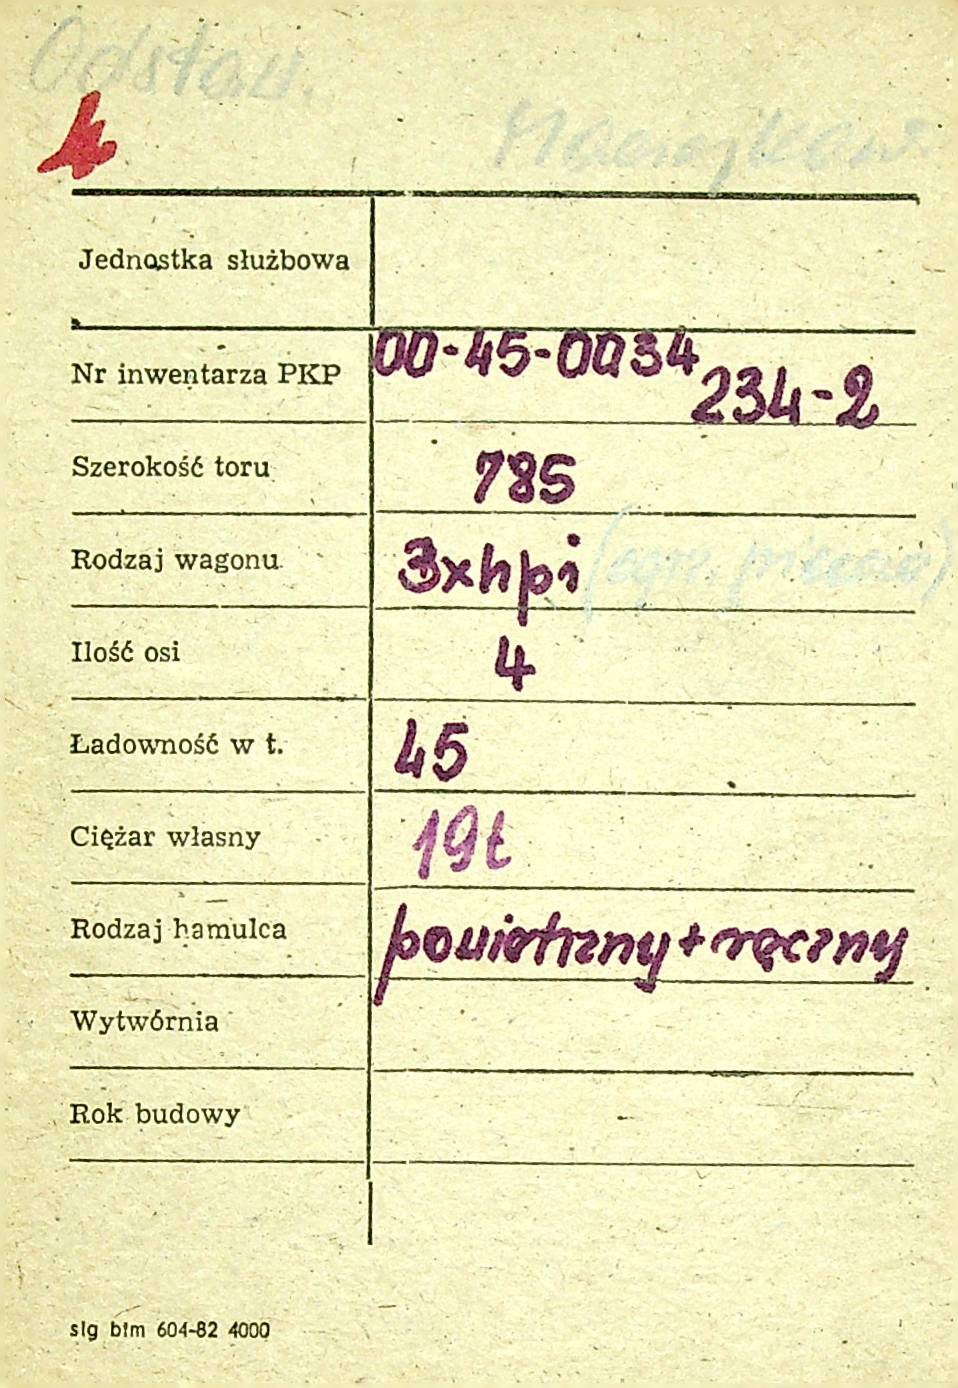 Odstaw.
4
Jednostka służbowa
Nr inwentarza PKP 00-45-0034
234-2
Szerokość toru 785
Rodzaj wagonu 3xhpi
Ilość osi 4
Ładowność w t. 45
Ciężar własny 19t
Rodzaj hamulca powietrzny + ręczny
Wytwórnia
Rok budowy
slg błm 604-82 4000